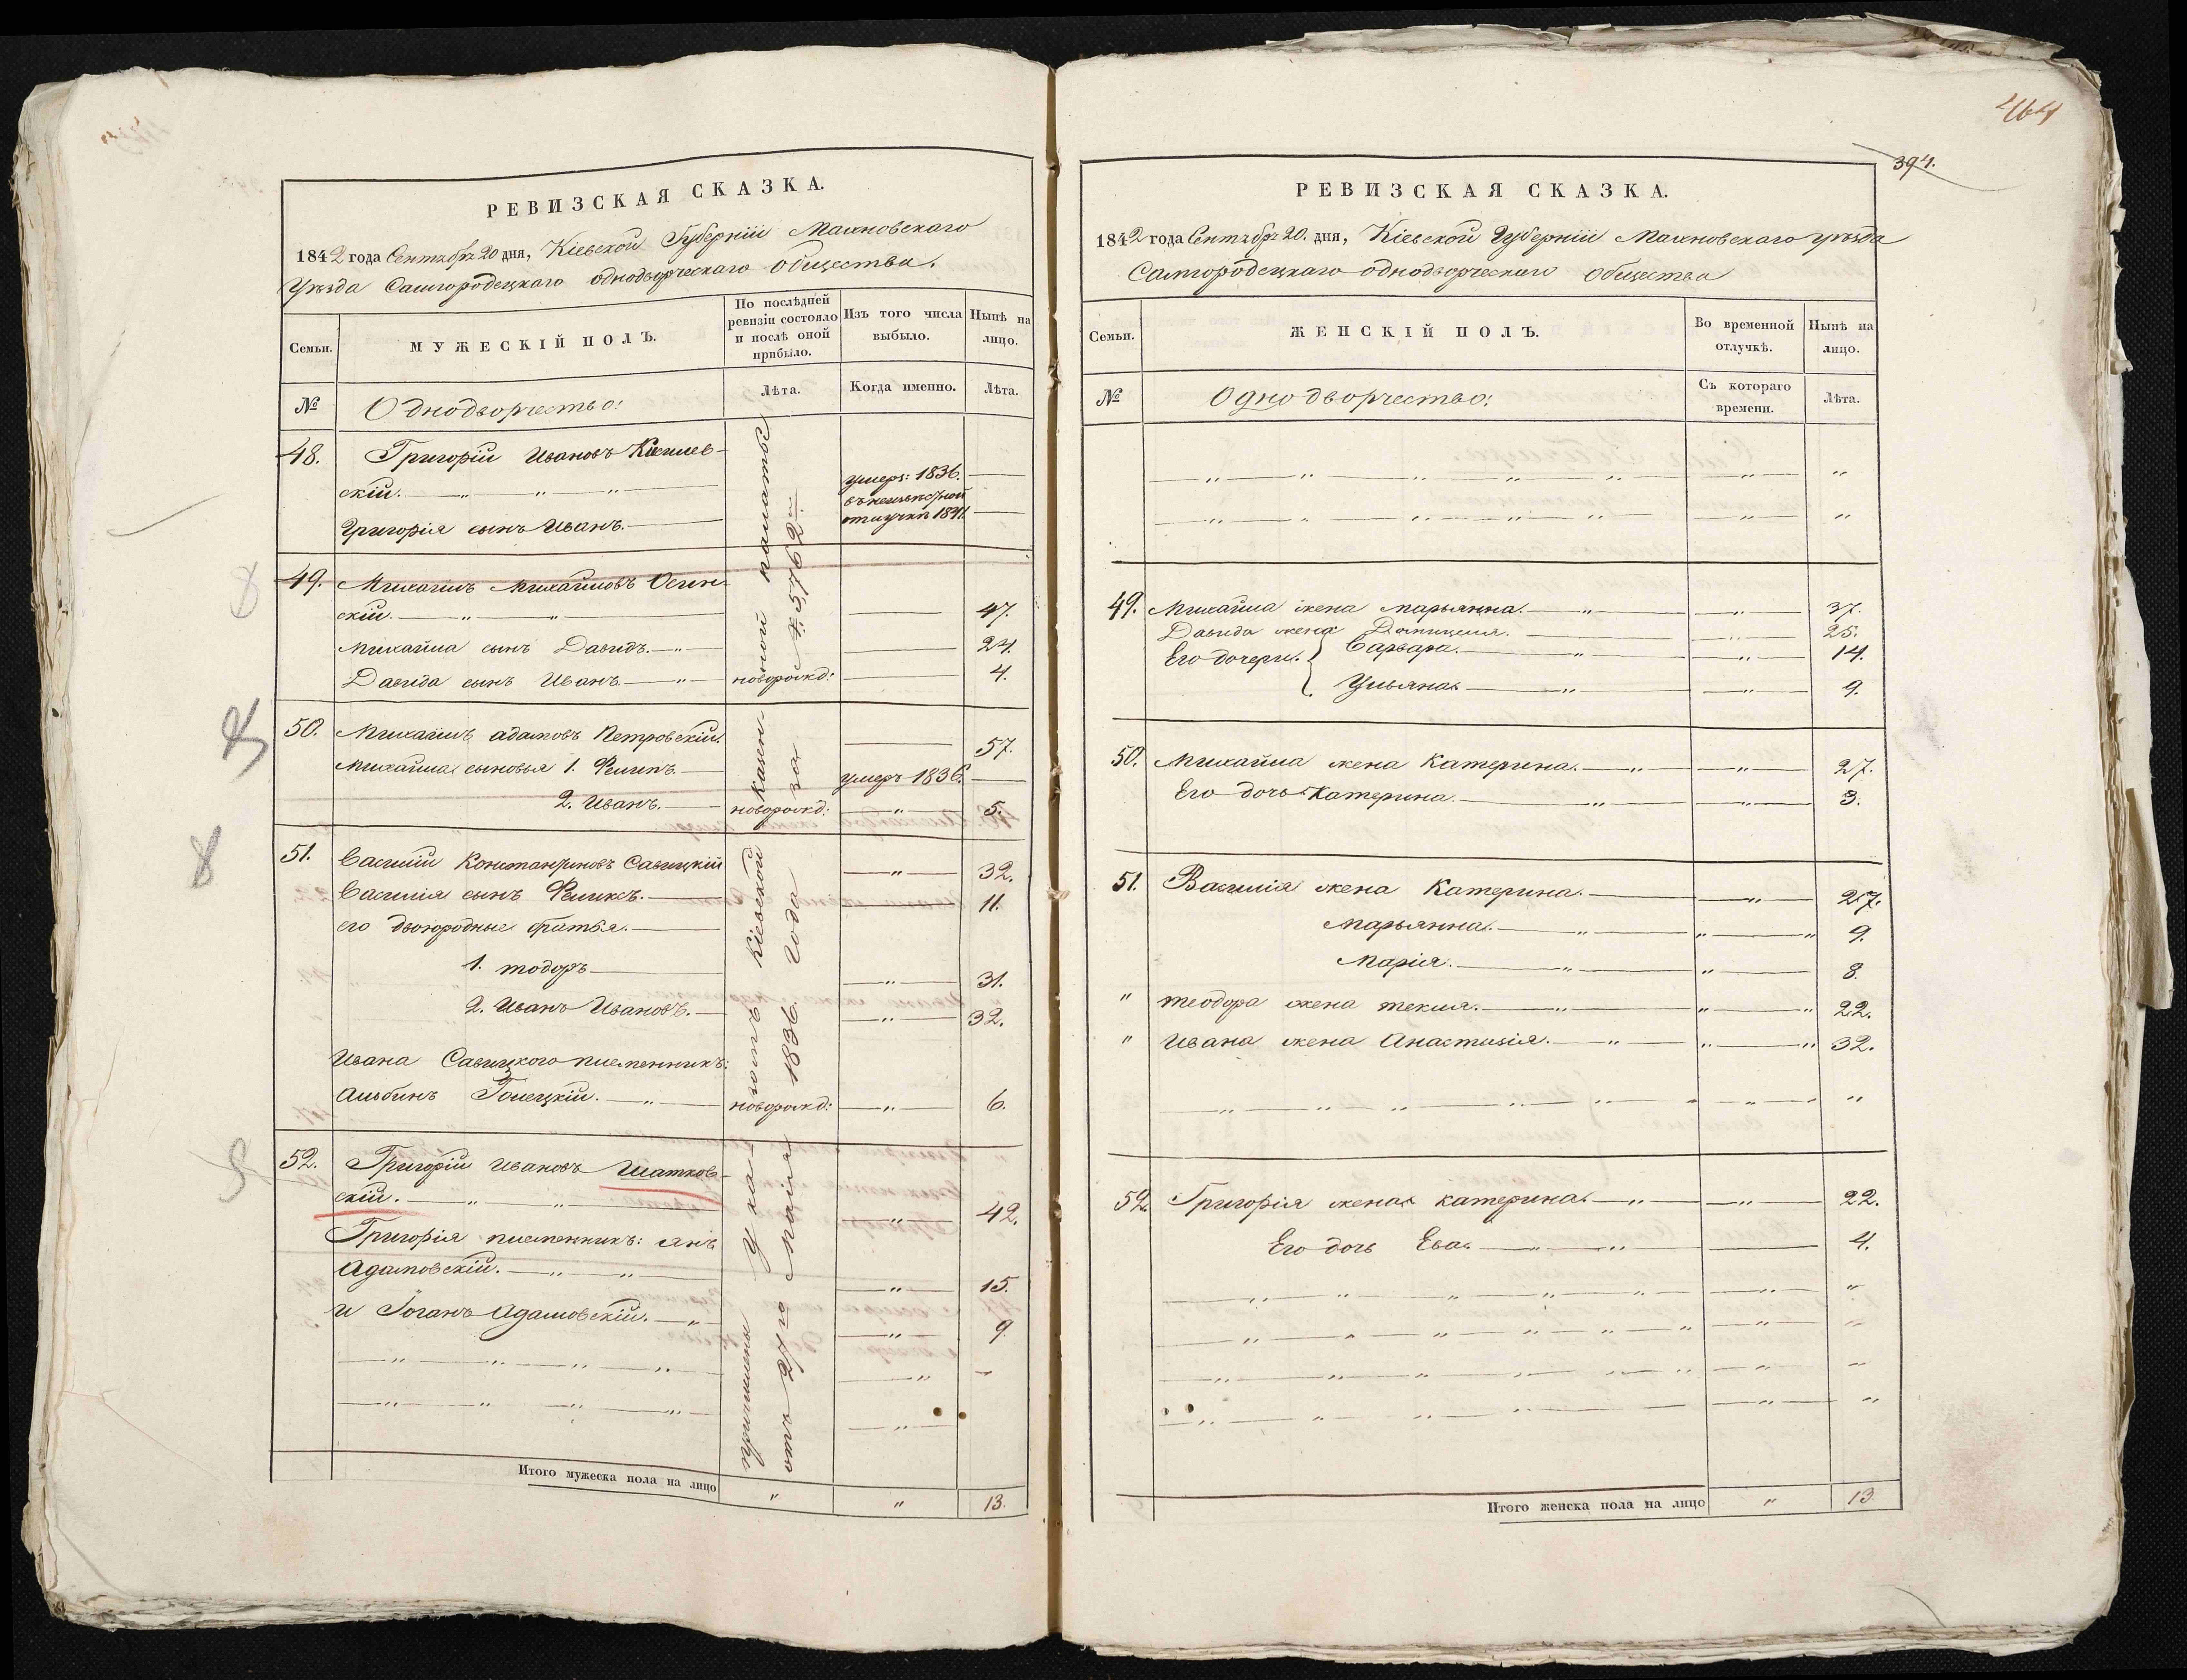 РЕВИЗСКАЯ СКАЗКА.
1842 года Сентября 20 дня, Кіевской Губерніи Махновскаго
Уѣзда Самгородецкаго однодворческаго Общества.
Семьи.
МУЖЕСКІЙ ПОЛЪ.
По послѣдней ревизіи состояло и послѣ оной прибыло.
Изъ того числа выбыло.
Нынѣ на лицо.
№
Однодворчество:
Лѣта.
Когда именно.
Лѣта.
48. Григорій Ивановъ
скій. умеръ: 1836.
Григорія сынъ Иванъ. въ неизвѣстной отлучкѣ 1841.
49. Михаилъ Михайловъ Осин-
скій. 47.
Михайла сынъ Давидъ. 24.
Давида сынъ Иванъ новорожд: 4.
50. Михаилъ Адамовъ Петровскій. 57.
Михайла сыновья 1. Филипъ. умеръ 1836.
2. Иванъ. новорожд: 5.
51. Василій Константиновъ Савицкій 32.
Василія сынъ Феликсъ. 11.
его двоюродные братья.
1. Тодоръ 31.
2. Иванъ Ивановъ. 32.
Ивана Савицкого племенникъ:
Альбинъ Голецкій. новорожд: 6.
52. Григорій Ивановъ Шатков-
скій. 42.
Григорія племенникъ: Янъ
Адамовскій. 15.
и Іоганъ Адамовскій. 9.
причислены по указу Кіевской Казенной палаты
отъ 27го Маія 1836 года за № 35762м
Итого мужеска пола на лицо " " 13.
464
394.
РЕВИЗСКАЯ СКАЗКА.
1842 года Сентября 20. дня, Кіевской Губерніи Махновскаго уѣзда
Самгородецкаго однодворческаго Общества
Семьи.
ЖЕНСКІЙ ПОЛЪ.
Во временной отлучкѣ.
Нынѣ на лицо.
№
Однодворчество:
Съ котораго времени.
Лѣта.
49. Михайла жена Марьянна. 37.
Давида жена Домицеля. 25.
Его дочери. Варвара. 14.
Ульяна. 9.
50. Михайла жена Катерина. 27.
Его дочь Катерина. 3.
51. Василія жена Катерина. 27.
Марьянна. 9.
Марія. 8.
" Теодора жена Текля. 22.
" Ивана жена Анастазія. 32.
52. Григорія жена Катерина. 22.
Его дочь Ева. 4.
Итого женска пола на лицо " 13